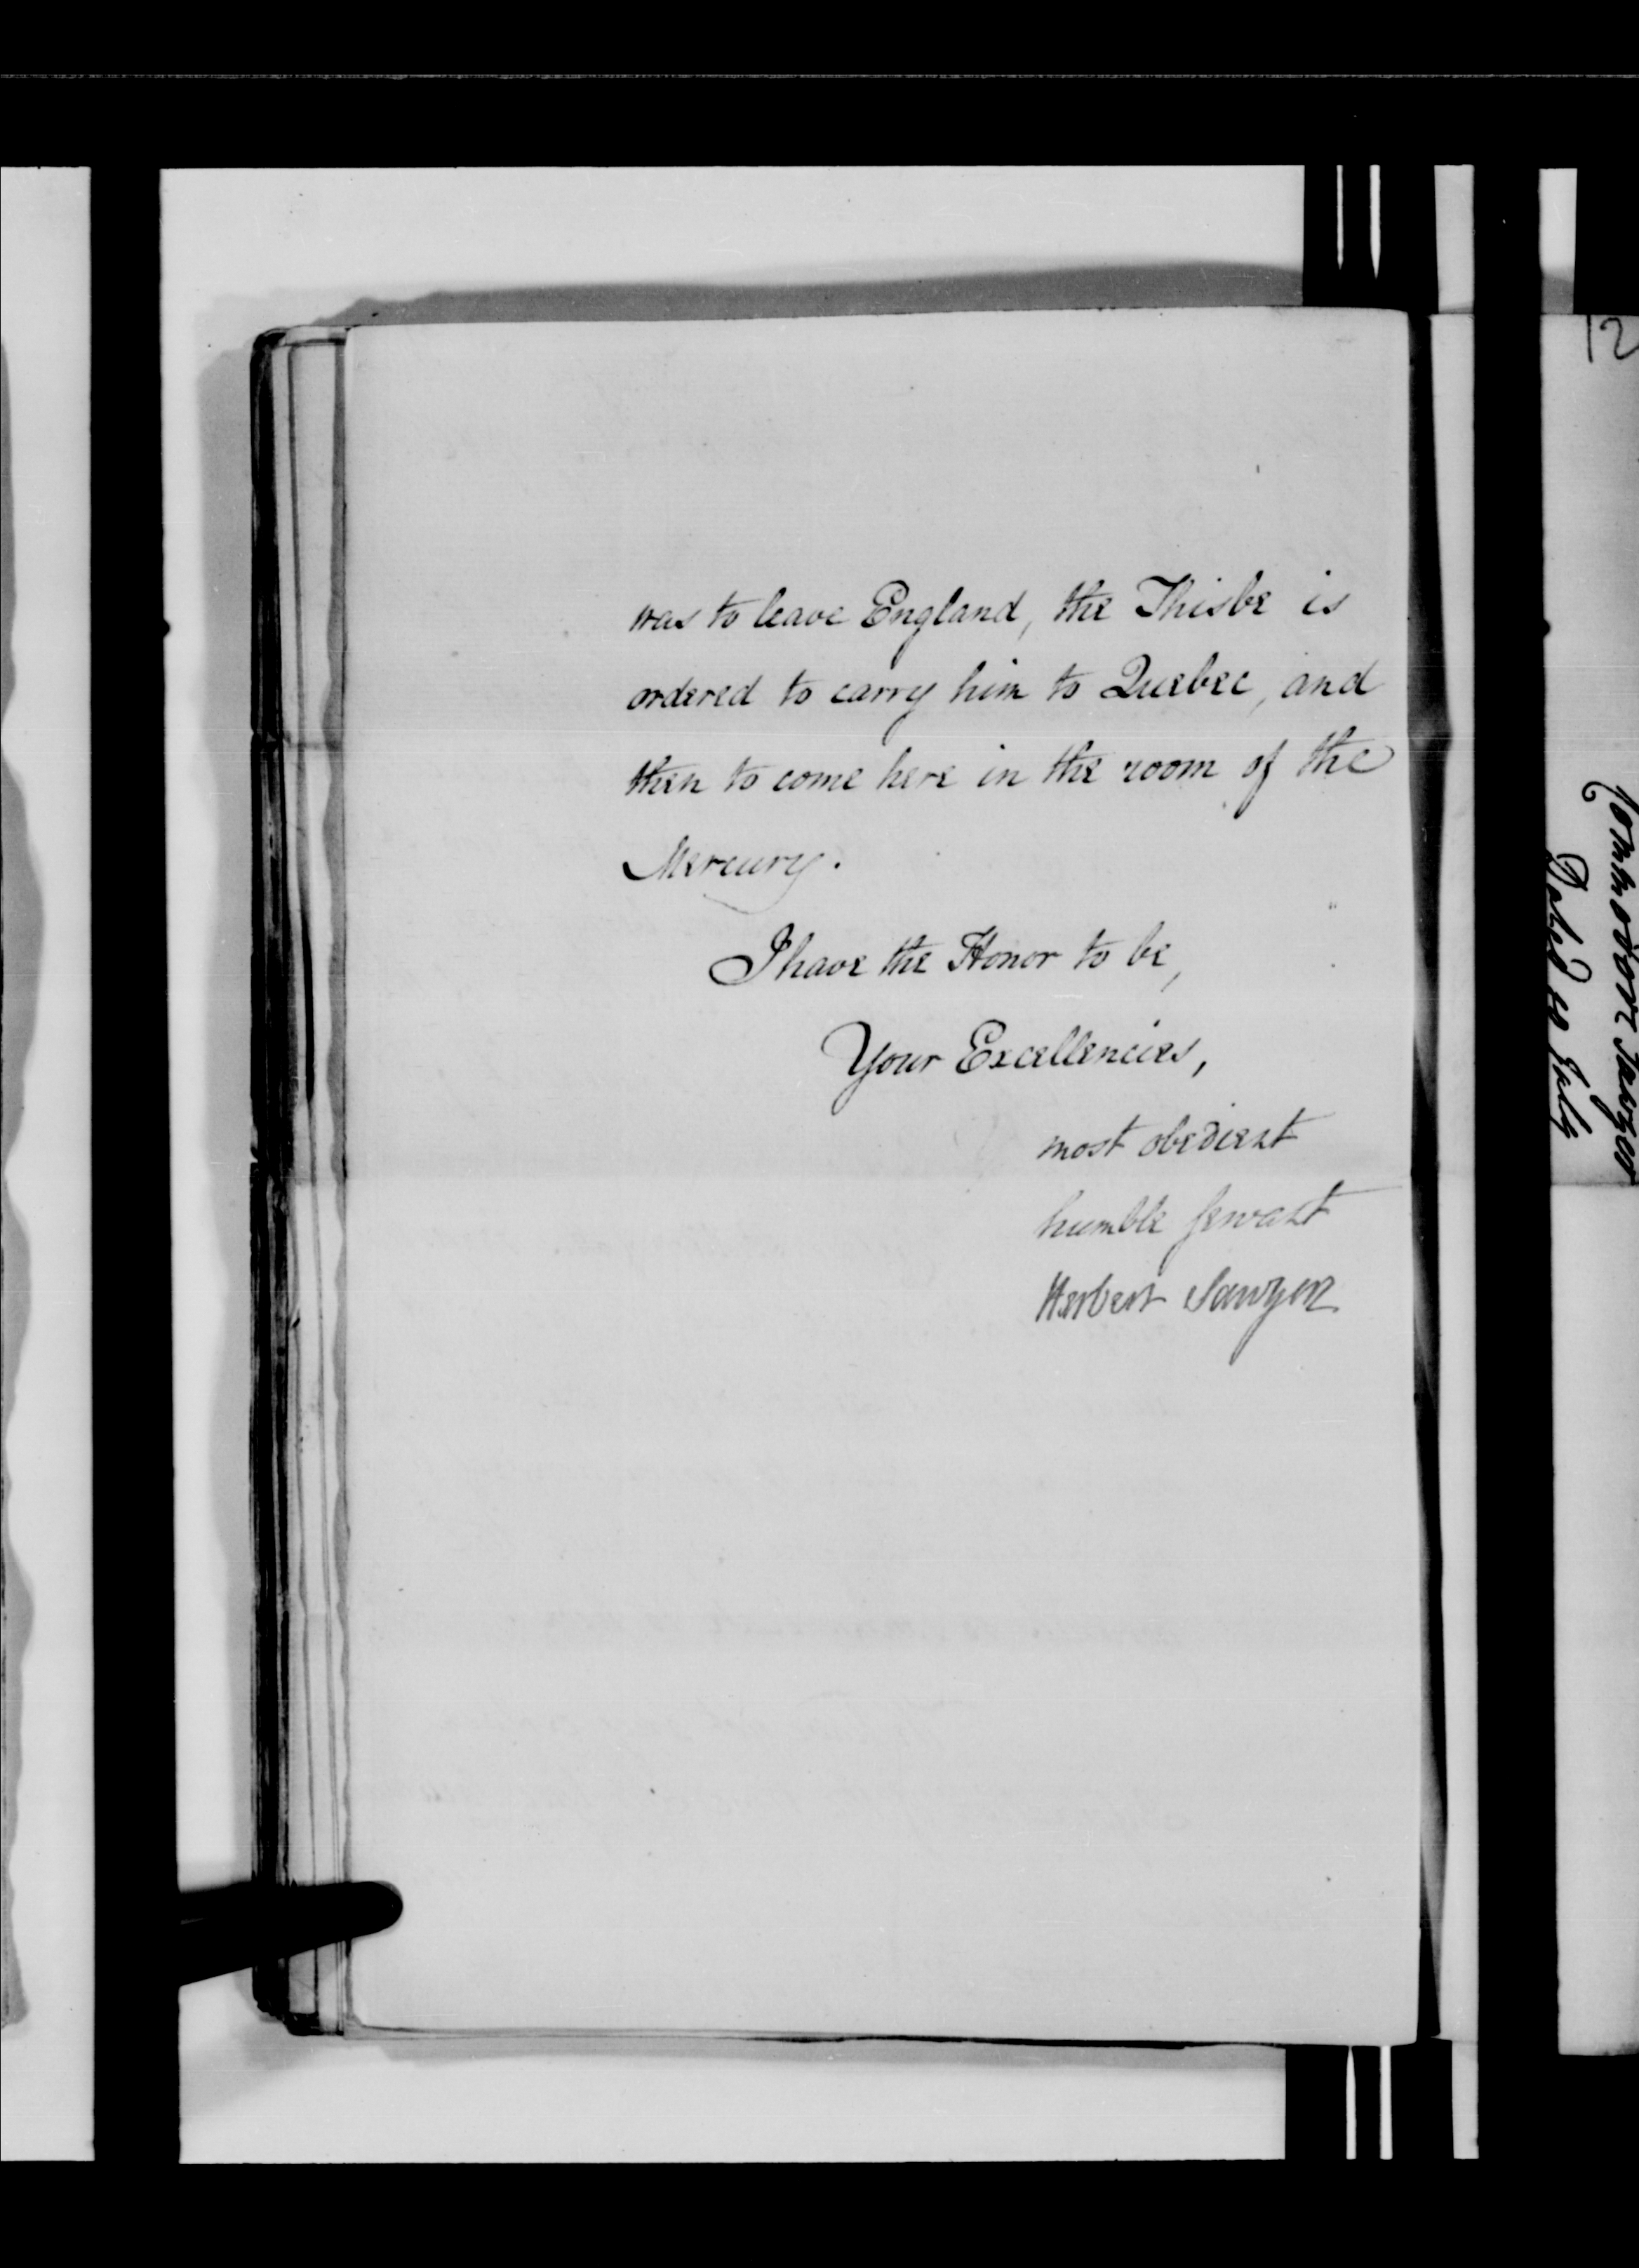 was to leave England, the Thisbe is
ordered to carry him to Quebec, and
then to come here in the room of the
Mercury.
I have the Honor to be,
Your Excellencies,
most obedient
humble servant
Herbert Sawyer
12
Commodore Sawyer
Dated July